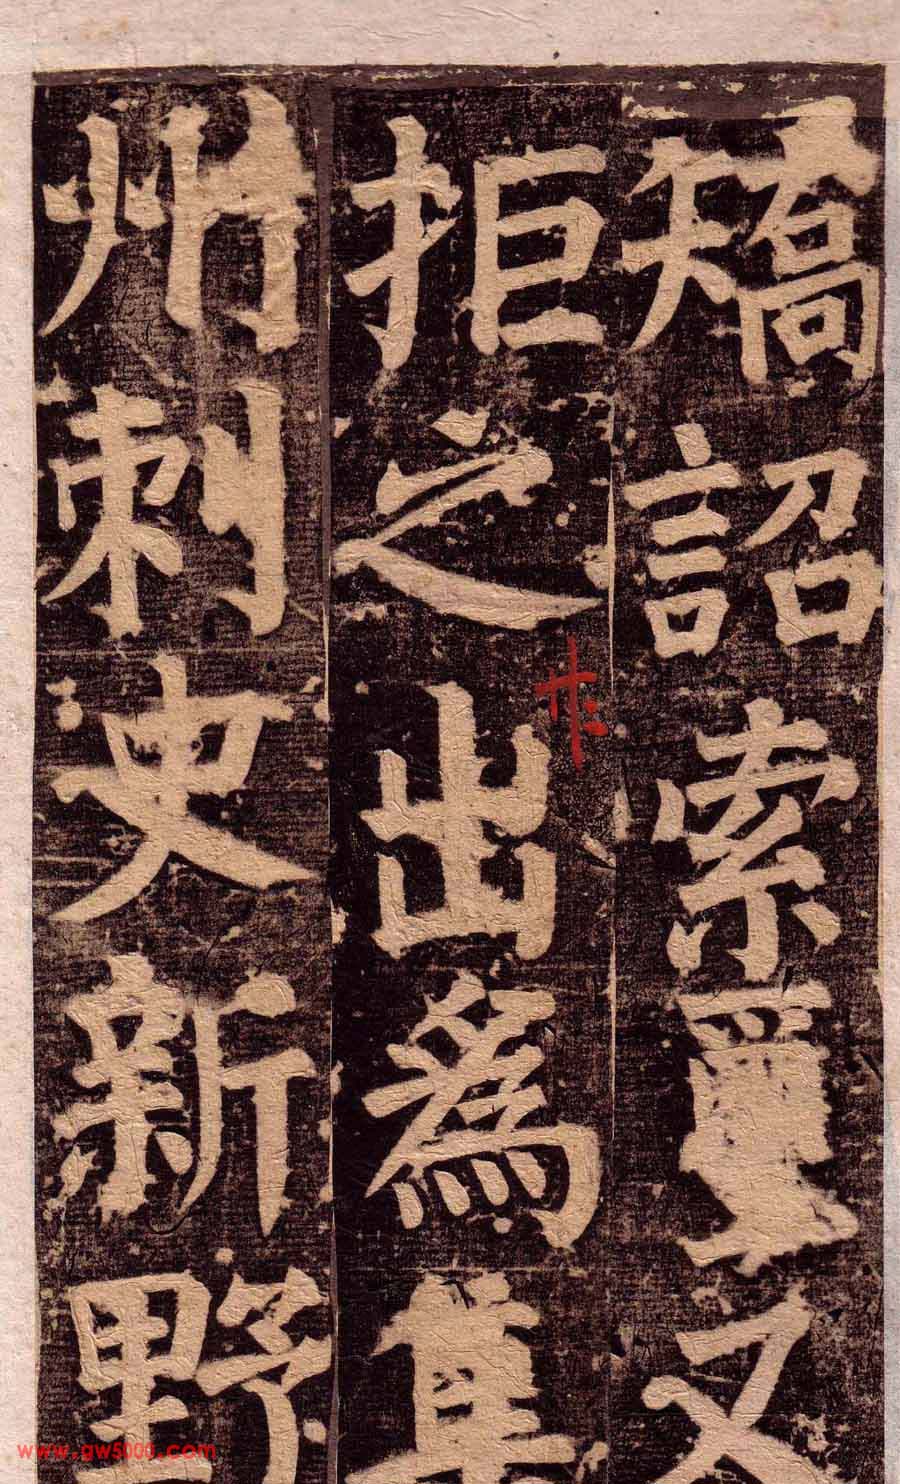 矯詔索又
拒之出為集
州刺史新野
www.gw5000.com